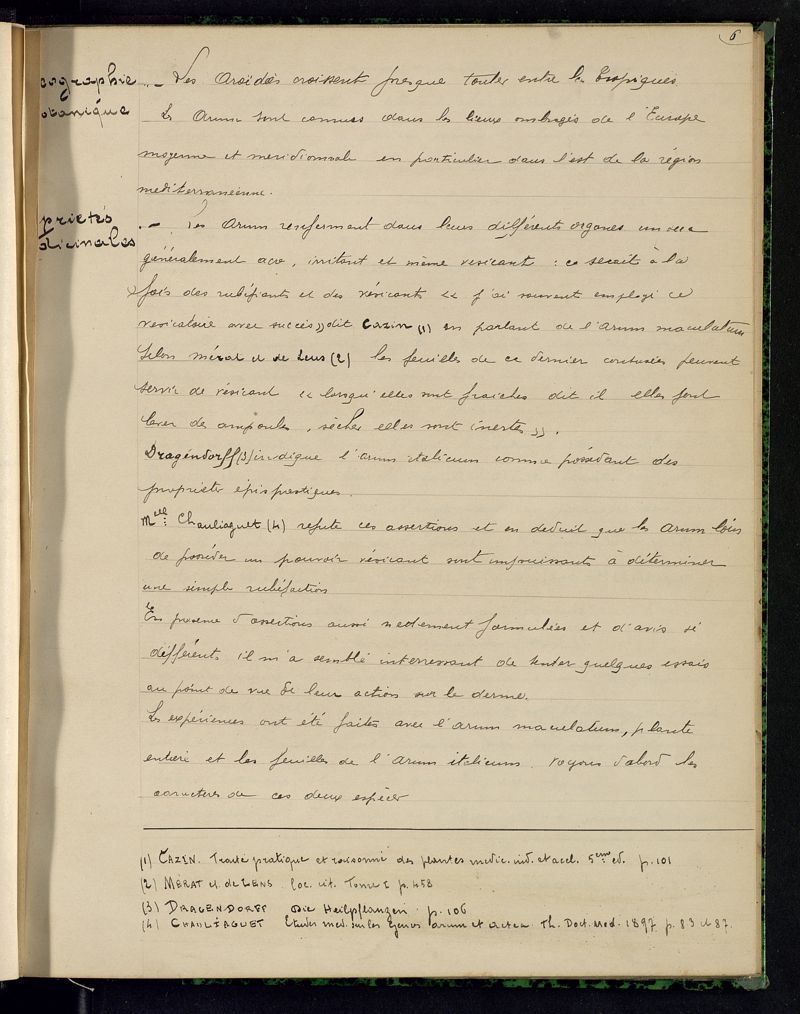 6
ographie .. — Les Aroïdées croissent presque toutes entre les tropiques.
otanique
Les Arum sont connus dans les lieux ombragés de l'Europe
moyenne et meridionnale en particulier dans l'est de la région
mediterranéenne.
priétés
dicinales
. — Les Arum renferment dans leurs différents organes un
généralement acre, irritant et même vesicant : ce serait à la
fois des rubéfiants et des vésicants << j'ai souvent employé ce
vesicatoire avec succès >> dit Cazin (1) en parlant de l'arum maculatum
Selon mérat et de Lens (2) les feuilles de ce dernier contusées peuvent
servir de vésicant << lorsqu'elles sont fraiches dit il elles font
lever des ampoules, sèches elles sont inertes >>.
Dragendorff (3) indique l'arum italicum comme possédant des
propriétés épispastiques.
Melle : Chauliaguet (4) refute ces assertions et en deduit que les Arum loin
de posséder un pouvoir vésicant sont impuissants à déterminer
une simple rubéfaction
En présence d'assertions aussi nettement formulées et d'avis si
différents il m'a semblé interressant de tenter quelques essais
au point de vue de leur action sur le derme.
Les expériences ont été faites avec l'arum maculatum, plante
entière et les feuilles de l'Arum italicum. Voyons d'abord les
caractères de ces deux espèces
(1) CAZIN. Traité pratique et raisonné des plantes medic. ind. et accl. 5eme ed. p. 101
(2) MÉRAT et de LENS loc. cit. Tome I p. 458
(3) DRAGENDORFF Die Heilpflanzen p. 106
(4) CHAULIAGUET Etudes med. sur les Genres arum et actea. Th. Doct. Med. 1897 p. 83 et 87.